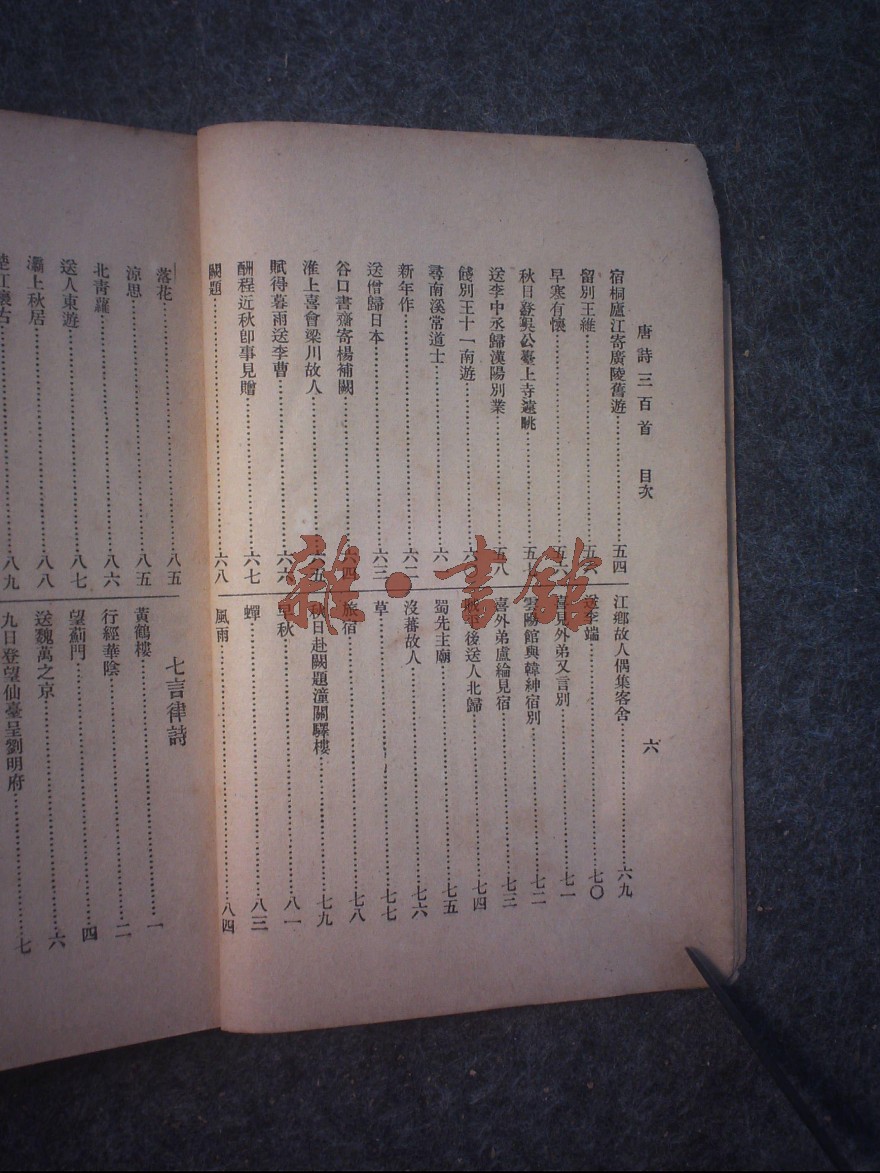 唐詩三百首 目次 六
宿桐廬江寄廣陵舊遊 五四
留別王維
早寒有懷
秋日登吳公臺上寺遠眺
送李中丞歸漢陽別業 五八
餞別王十一南遊
尋南溪常道士
新年作
送僧歸日本 六三
谷口書齋寄楊補闕 六四
淮上喜會梁川故人 六五
賦得暮雨送李曹 六六
酬程近秋卽事見贈 六七
闕題 六八
江鄉故人偶集客舍 六九
送李端 七〇
喜見外弟又言別 七一
雲陽館與韓紳宿別 七二
喜外弟盧綸見宿 七三
後送人北歸 七四
蜀先主廟 七五
沒蕃故人 七六
草 七七
旅宿 七八
秋日赴闕題潼關驛樓 七九
早秋 八一
蟬 八三
風雨 八四
落花 八五
涼思 八五
北靑蘿 八六
送人東遊 八七
灞上秋居 八八
八九
七言律詩
黃鶴樓 一
行經華陰 二
望薊門 四
送魏萬之京 六
九日登望仙臺呈劉明府 七
雜·書館